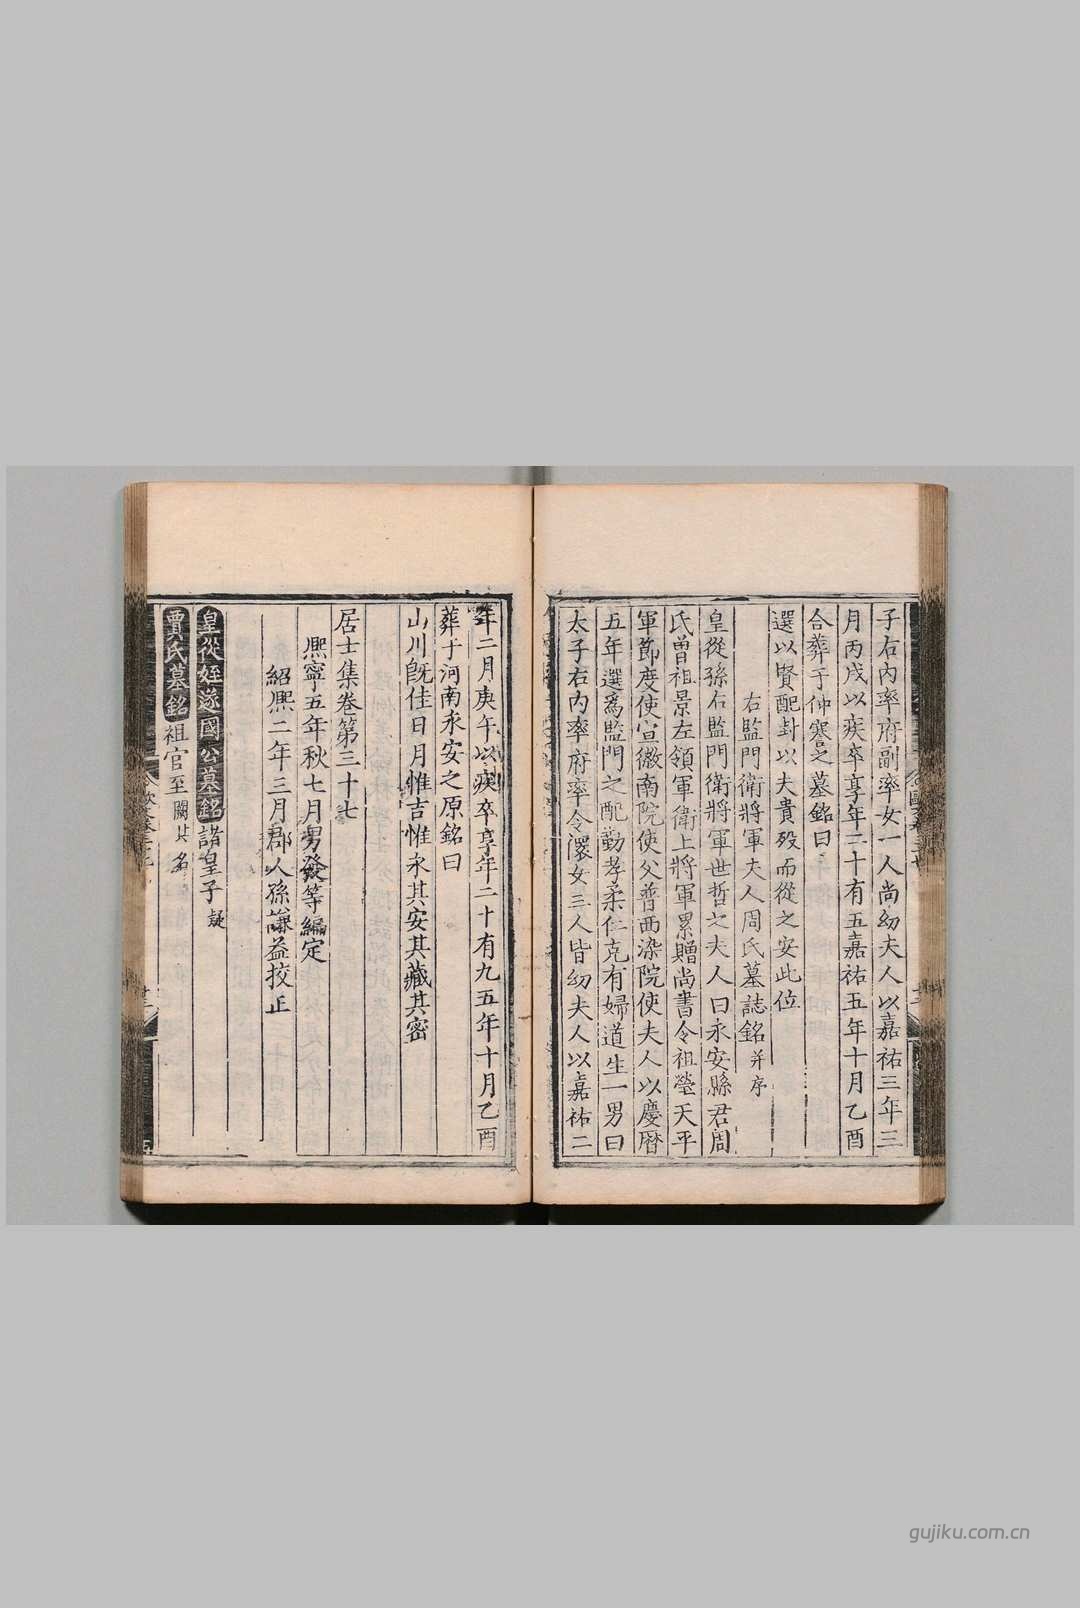 子右內率府副率女一人尚幼夫人以嘉祐三年三
月丙戌以疾卒享年二十有五嘉祐五年十月乙酉
合葬于仲騫之墓銘曰
選以賢配封以夫貴歿而從之安此位
右監門衛將軍夫人周氏墓誌銘并序
皇從孫右監門衛將軍世哲之夫人曰永安縣君周
氏曾祖景左領軍衛上將軍累贈尚書令祖瑩天平
軍節度使宣徽南院使父普西染院使夫人以慶曆
五年選為監門之配勤孝柔仁克有婦道生一男曰
太子右內率府率令澋女三人皆幼夫人以嘉祐二
年二月庚午以疾卒享年二十有九五年十月乙酉
葬于河南永安之原銘曰
山川旣佳日月惟吉惟永其安其藏其密
居士集卷第三十七
熙寧五年秋七月男發等編定
紹熙二年三月郡人孫謙益挍正
皇從姪遂國公墓銘諸皇子疑
賈氏墓銘祖官至闕其名
gujiku.com.cn